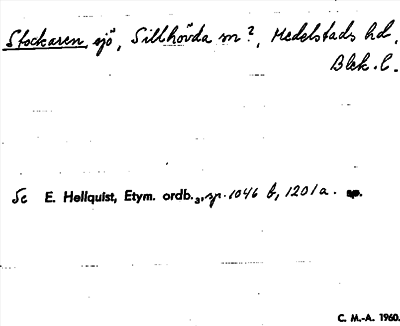 Stockaren, sjö, Sillhövda sn?, Medelstads hd,
Blek. l.
Se E. Hellquist, Etym. ordb.3, sp. 1046 b, 1201 a.
C. M.-A. 1960.